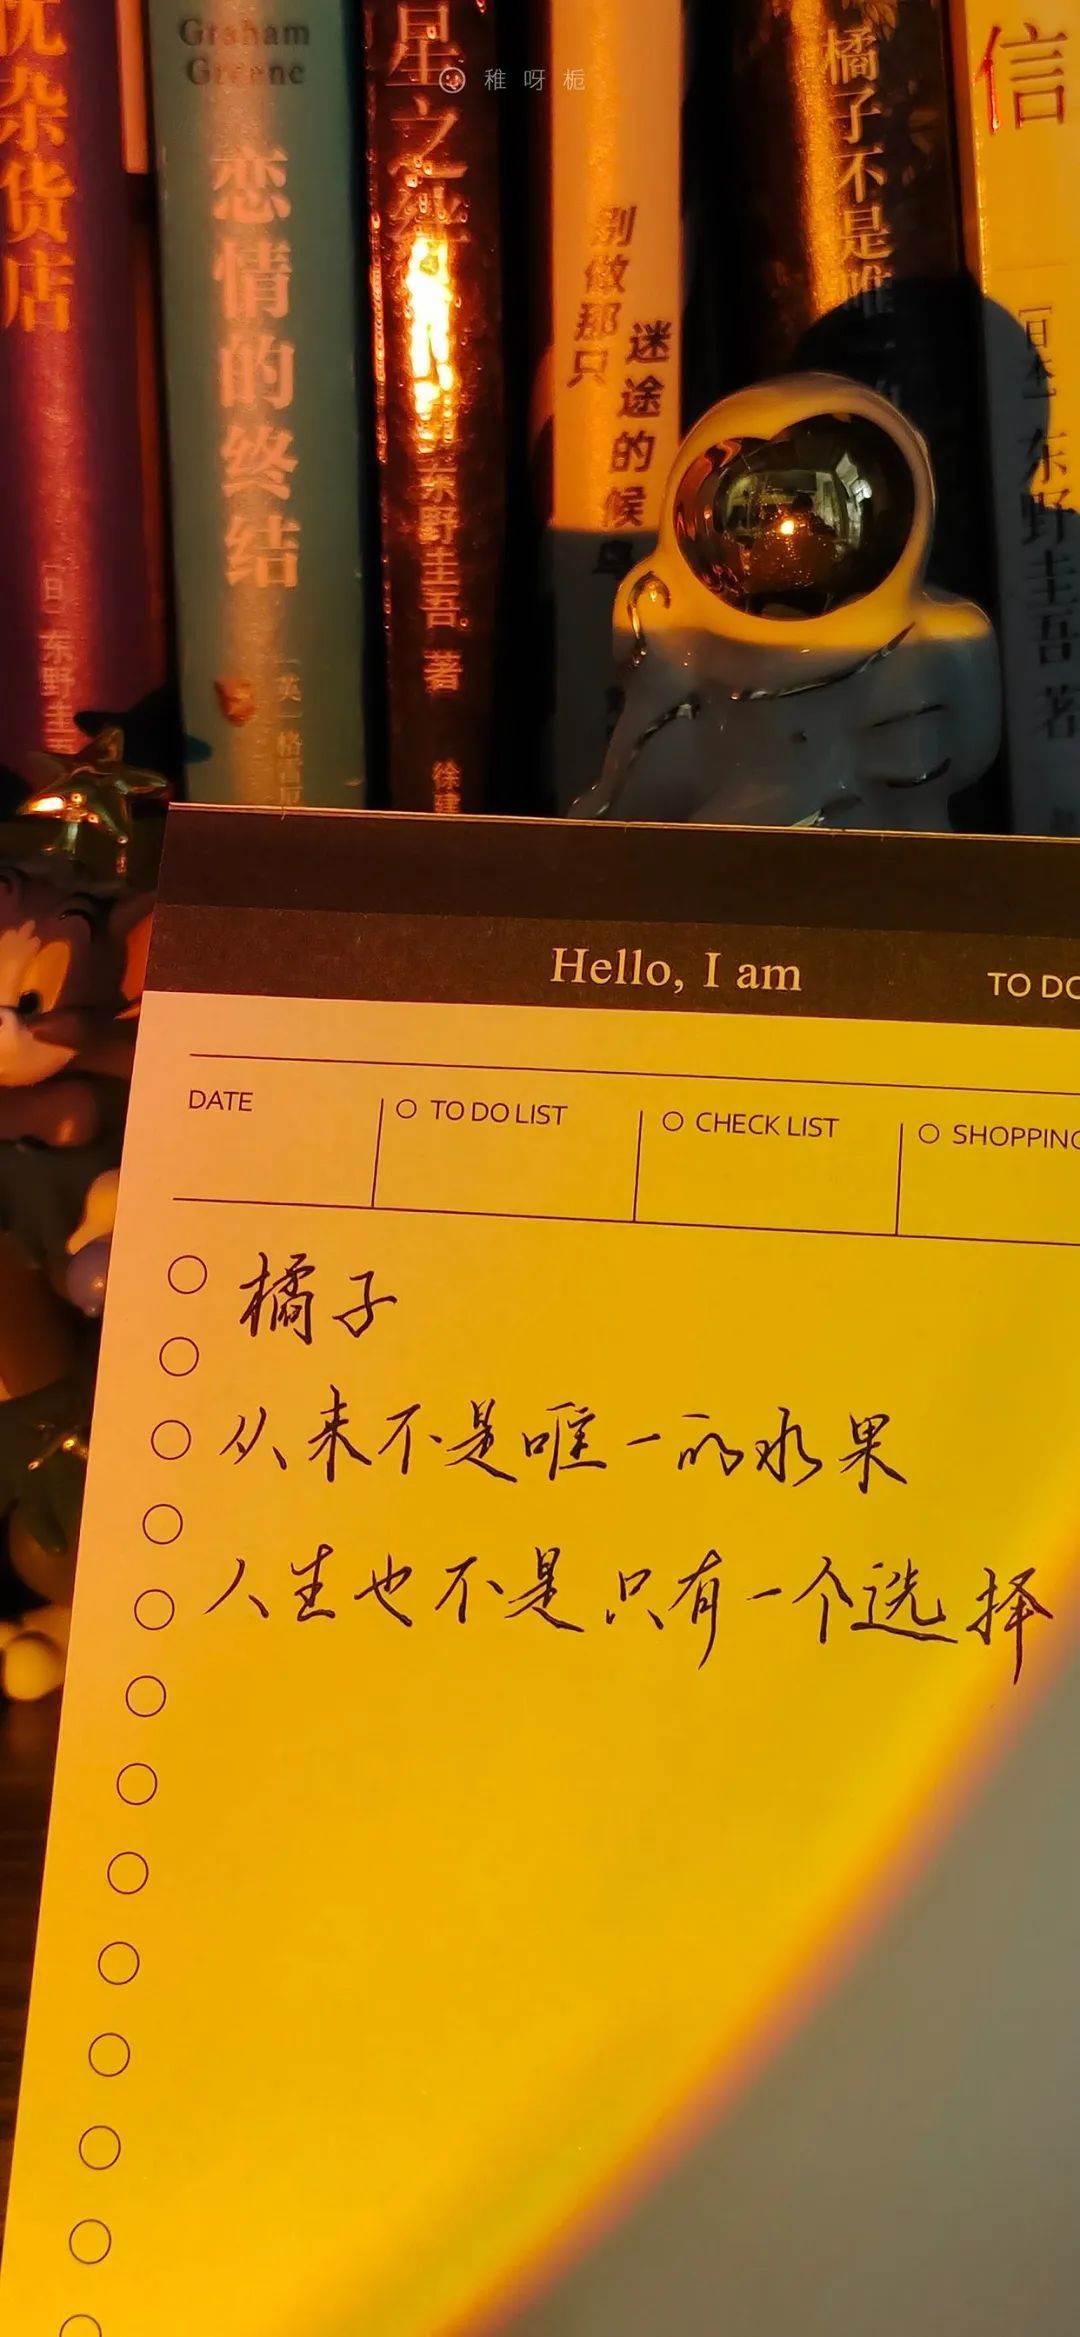 杂货店
[日]东野圭
Graham
Greene
恋情的终结
星之
东野圭吾 著
徐建
别做那只
迷途的候鸟
橘子不是唯一
信
[日本]东野圭吾 著
稚呀栀
Hello, I am
TO DO
DATE
TO DO LIST
CHECK LIST
SHOPPING
橘子
从来不是唯一的水果
人生也不是只有一个选择